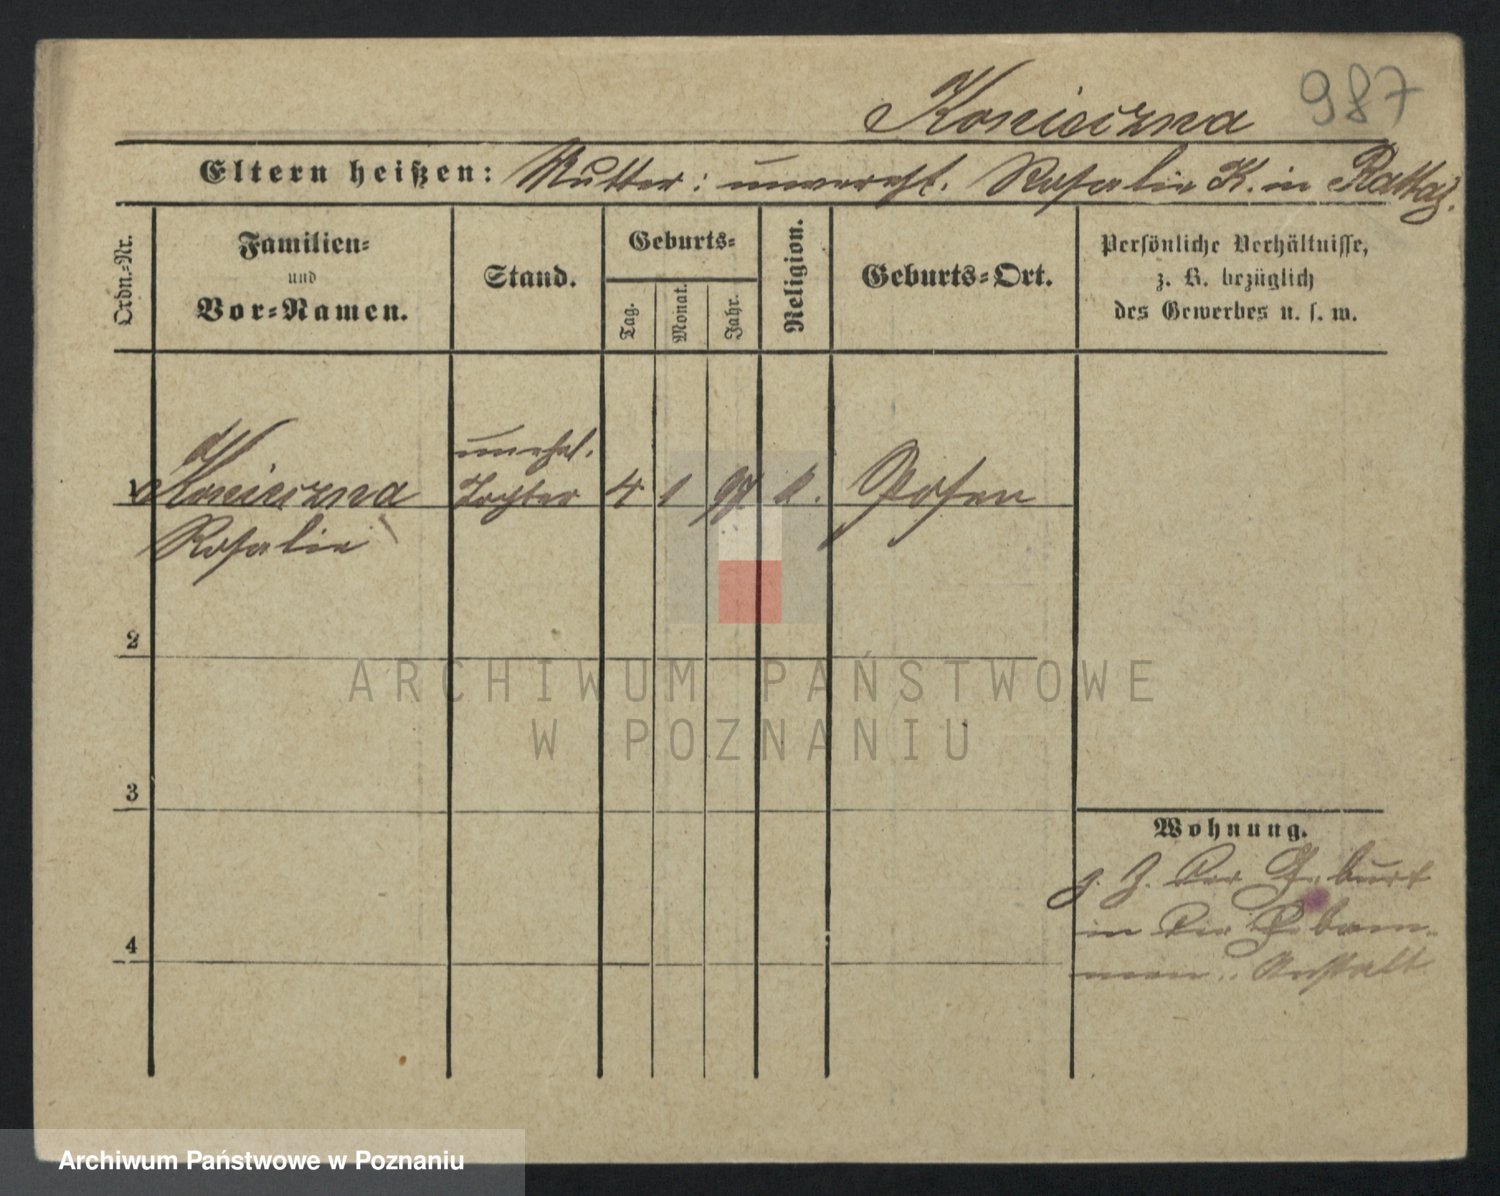 Konieczna 987
Eltern heißen: Mutter: unvereh. Rosalie K. in Rattaj.
Ordn.-Nr.
Familien-
und
Vor-Namen.
Stand.
Geburts-
Tag.
Monat.
Jahr.
Religion.
Geburts-Ort.
Persönliche Verhältnisse,
z. B. bezüglich
des Gewerbes u. s. w.
unehel.
1 Konieczna Tochter 4 1 97. k. Posen
Rosalie
2
3
4
Wohnung.
z. Z. der Geburt
in der Hebam-
men-Anstalt
ARCHIWUM PAŃSTWOWE
W POZNANIU
Archiwum Państwowe w Poznaniu